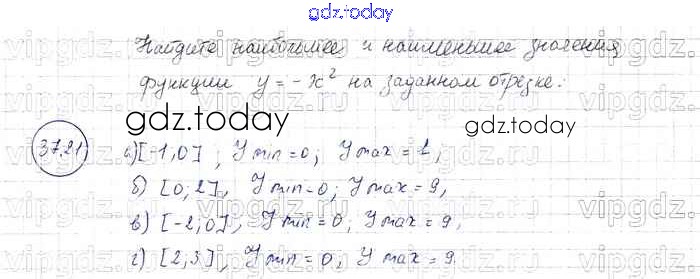 gdz.today
Найдите наибольшее и наименьшее значения
функции y = -x² на заданном отрезке:
gdz.today
gdz.today
37.21
а) [-1,0]; Y min = 0; Y max = 1,
б) [0; 2], Y min = 0; Y max = 9,
в) [-2; 0], Y min = 0; Y max = 9,
г) [2, 3], Y min = 0, Y max = 9